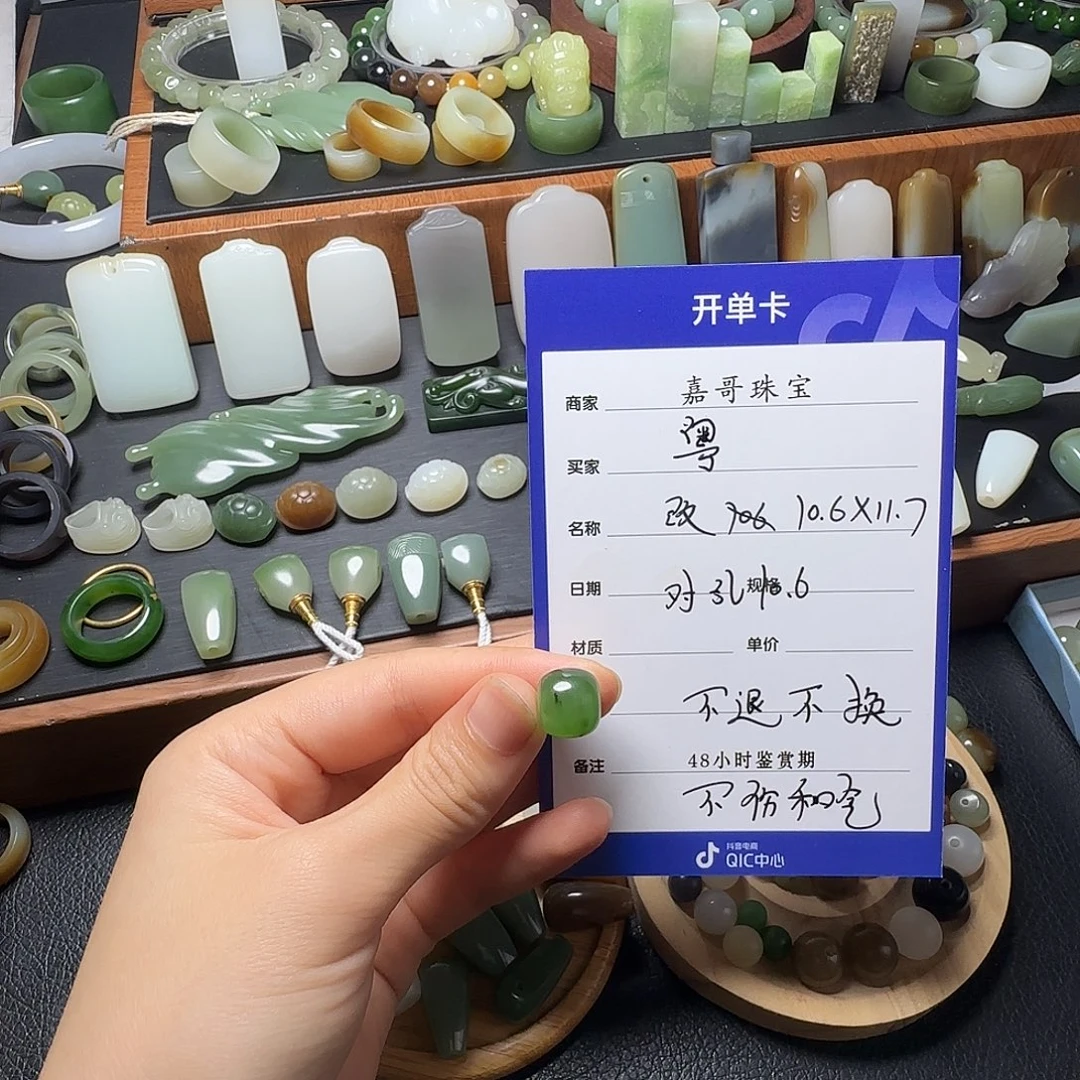 开单卡
商家 嘉哥珠宝
买家 粤
名称 改 10.6X11.7
日期 对孔 规格 1.6
材质 单价
不退不换
备注 48小时鉴赏期
不
抖音电商
QIC中心